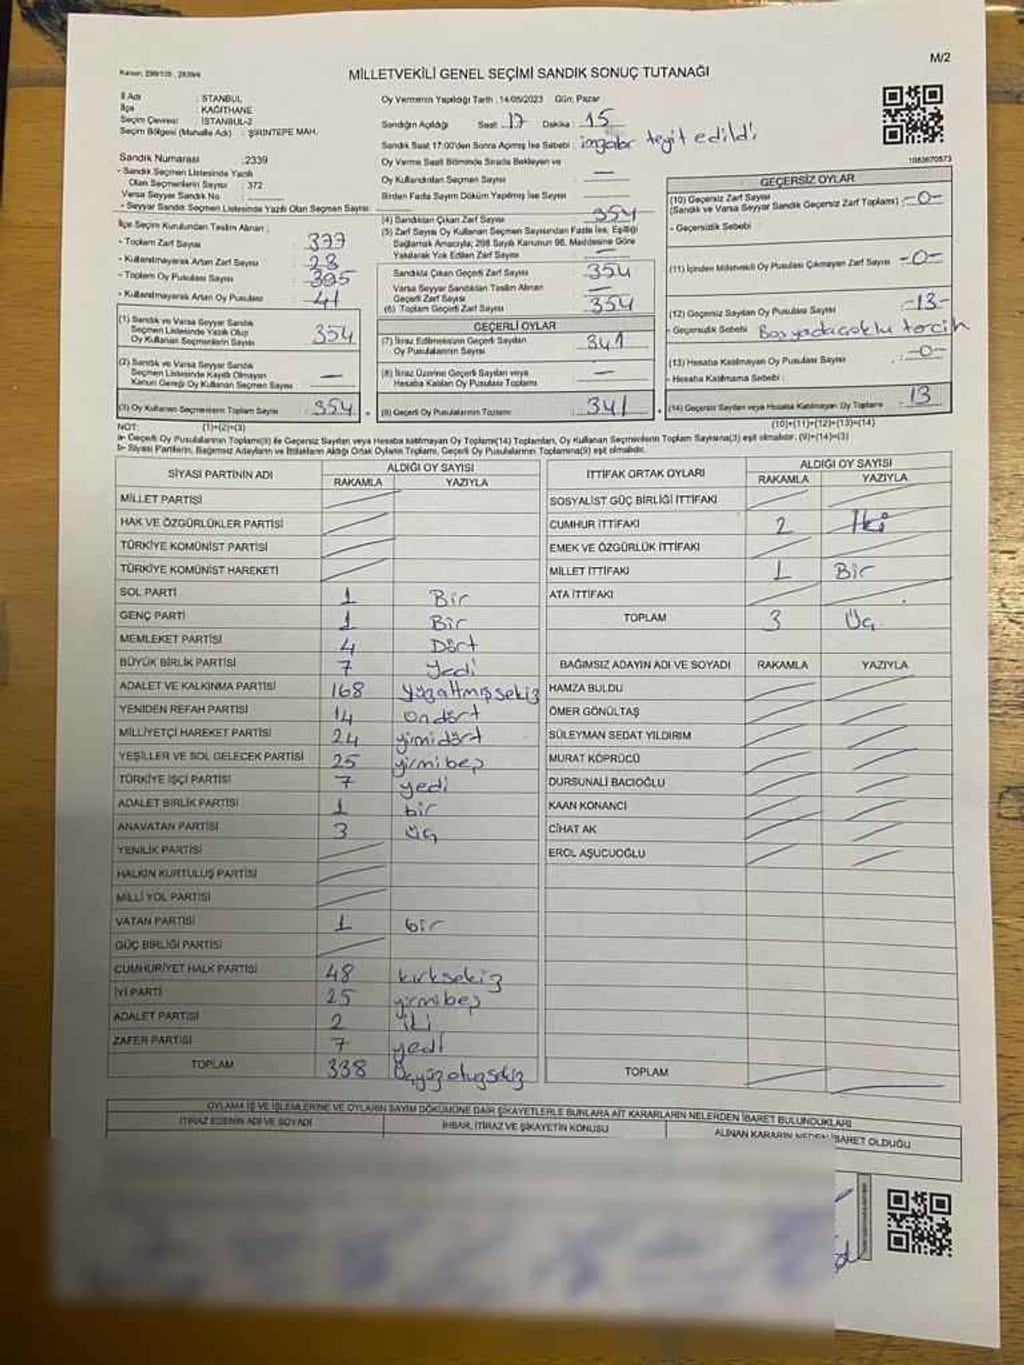 M/2
Kanun: 298/105 , 2839/6
MİLLETVEKİLİ GENEL SEÇİMİ SANDIK SONUÇ TUTANAĞI
İl Adı : İSTANBUL
İlçe : KAĞITHANE
Seçim Çevresi : İSTANBUL-2
Seçim Bölgesi (Mahalle Adı) : ŞİRİNTEPE MAH.
Oy Vermenin Yapıldığı Tarih : 14/05/2023 Gün: Pazar
Sandığın Açıldığı Saat : 17 Dakika : 15
Sandık Saat 17:00'den Sonra Açılmış İse Sebebi : imzalar teyit edildi
Oy Verme Saati Bitiminde Sırada Bekleyen ve
Oy Kullandırılan Seçmen Sayısı —
Birden Fazla Sayım Döküm Yapılmış İse Sayısı
1083670573
Sandık Numarası : 2339
- Sandık Seçmen Listesinde Yazılı
Olan Seçmenlerin Sayısı : 372
Varsa Seyyar Sandık No
- Seyyar Sandık Seçmen Listesinde Yazılı Olan Seçmen Sayısı
İlçe Seçim Kurulundan Teslim Alınan :
- Toplam Zarf Sayısı 377
- Kullanılmayarak Artan Zarf Sayısı 23
- Toplam Oy Pusulası Sayısı 395
- Kullanılmayarak Artan Oy Pusulası 41
(1) Sandık ve Varsa Seyyar Sandık
Seçmen Listesinde Yazılı Olup
Oy Kullanan Seçmenlerin Sayısı 354
(2) Sandık ve Varsa Seyyar Sandık
Seçmen Listesinde Kayıtlı Olmayan
Kanun Gereği Oy Kullanan Seçmen Sayısı —
(3) Oy Kullanan Seçmenlerin Toplam Sayısı 354
(1)+(2)=(3)
(4) Sandıktan Çıkan Zarf Sayısı 354
(5) Zarf Sayısı Oy Kullanan Seçmen Sayısından Fazla İse, Eşitliği
Sağlamak Amacıyla; 298 Sayılı Kanunun 98. Maddesine Göre
Yakılarak Yok Edilen Zarf Sayısı —
Sandıkta Çıkan Geçerli Zarf Sayısı 354
Varsa Seyyar Sandıktan Teslim Alınan
Geçerli Zarf Sayısı —
(6) Toplam Geçerli Zarf Sayısı 354
GEÇERLİ OYLAR
(7) İtiraz Edilmeksizin Geçerli Sayılan
Oy Pusulalarının Sayısı 341
(8) İtiraz Üzerine Geçerli Sayılan veya
Hesaba Katılan Oy Pusulası Toplamı —
(9) Geçerli Oy Pusulalarının Toplamı 341
GEÇERSİZ OYLAR
(10) Geçersiz Zarf Sayısı
(Sandık ve Varsa Seyyar Sandık Geçersiz Zarf Toplamı) -0-
- Geçersizlik Sebebi :
(11) İçinden Milletvekili Oy Pusulası Çıkmayan Zarf Sayısı -0-
(12) Geçersiz Sayılan Oy Pusulası Sayısı -13-
- Geçersizlik Sebebi tercih
(13) Hesaba Katılmayan Oy Pusulası Sayısı -0-
- Hesaba Katılmama Sebebi :
(14) Geçersiz Sayılan veya Hesaba Katılmayan Oy Toplamı 13
(10)+(11)+(12)+(13)=(14)
NOT:
a- Geçerli Oy Pusulalarının Toplamı(9) ile Geçersiz Sayılan veya Hesaba katılmayan Oy Toplamı(14) Toplamları, Oy Kullanan Seçmenlerin Toplam Sayısına(3) eşit olmalıdır. (9)+(14)=(3)
b- Siyasi Partilerin, Bağımsız Adayların ve İttifakların Aldığı Ortak Oyların Toplamı, Geçerli Oy Pusulalarının Toplamına(9) eşit olmalıdır.
SİYASİ PARTİNİN ADI ALDIĞI OY SAYISI
RAKAMLA YAZIYLA
MİLLET PARTİSİ
HAK VE ÖZGÜRLÜKLER PARTİSİ
TÜRKİYE KOMÜNİST PARTİSİ
TÜRKİYE KOMÜNİST HAREKETİ
SOL PARTİ 1 Bir
GENÇ PARTİ 1 Bir
MEMLEKET PARTİSİ 4 Dört
BÜYÜK BİRLİK PARTİSİ 7 Yedi
ADALET VE KALKINMA PARTİSİ 168 yüzaltmışsekiz
YENİDEN REFAH PARTİSİ 14 ondört
MİLLİYETÇİ HAREKET PARTİSİ 24 yirmidört
YEŞİLLER VE SOL GELECEK PARTİSİ 25 yirmibeş
TÜRKİYE İŞÇİ PARTİSİ 7 yedi
ADALET BİRLİK PARTİSİ 1 bir
ANAVATAN PARTİSİ 3 üç
YENİLİK PARTİSİ
HALKIN KURTULUŞ PARTİSİ
MİLLİ YOL PARTİSİ
VATAN PARTİSİ 1 bir
GÜÇ BİRLİĞİ PARTİSİ
CUMHURİYET HALK PARTİSİ 48 kırksekiz
İYİ PARTİ 25 yirmibeş
ADALET PARTİSİ 2 iki
ZAFER PARTİSİ 7 yedi
TOPLAM 338 Üçyüzotuzsekiz
İTTİFAK ORTAK OYLARI ALDIĞI OY SAYISI
RAKAMLA YAZIYLA
SOSYALİST GÜÇ BİRLİĞİ İTTİFAKI
CUMHUR İTTİFAKI 2 İki
EMEK VE ÖZGÜRLÜK İTTİFAKI
MİLLET İTTİFAKI 1 Bir
ATA İTTİFAKI
TOPLAM 3 Üç
BAĞIMSIZ ADAYIN ADI VE SOYADI RAKAMLA YAZIYLA
HAMZA BULDU
ÖMER GÖNÜLTAŞ
SÜLEYMAN SEDAT YILDIRIM
MURAT KÖPRÜCÜ
DURSUNALİ BACIOĞLU
KAAN KONANCİ
CİHAT AK
EROL AŞUCUOĞLU
TOPLAM
OYLAMA İŞ VE İŞLEMLERİNE VE OYLARIN SAYIM DÖKÜMÜNE DAİR ŞİKAYETLERLE BUNLARA AİT KARARLARIN NELERDEN İBARET BULUNDUKLARI
İTİRAZ EDENİN ADI VE SOYADI İHBAR, İTİRAZ VE ŞİKAYETİN KONUSU ALINAN KARARIN NEDEN İBARET OLDUĞU